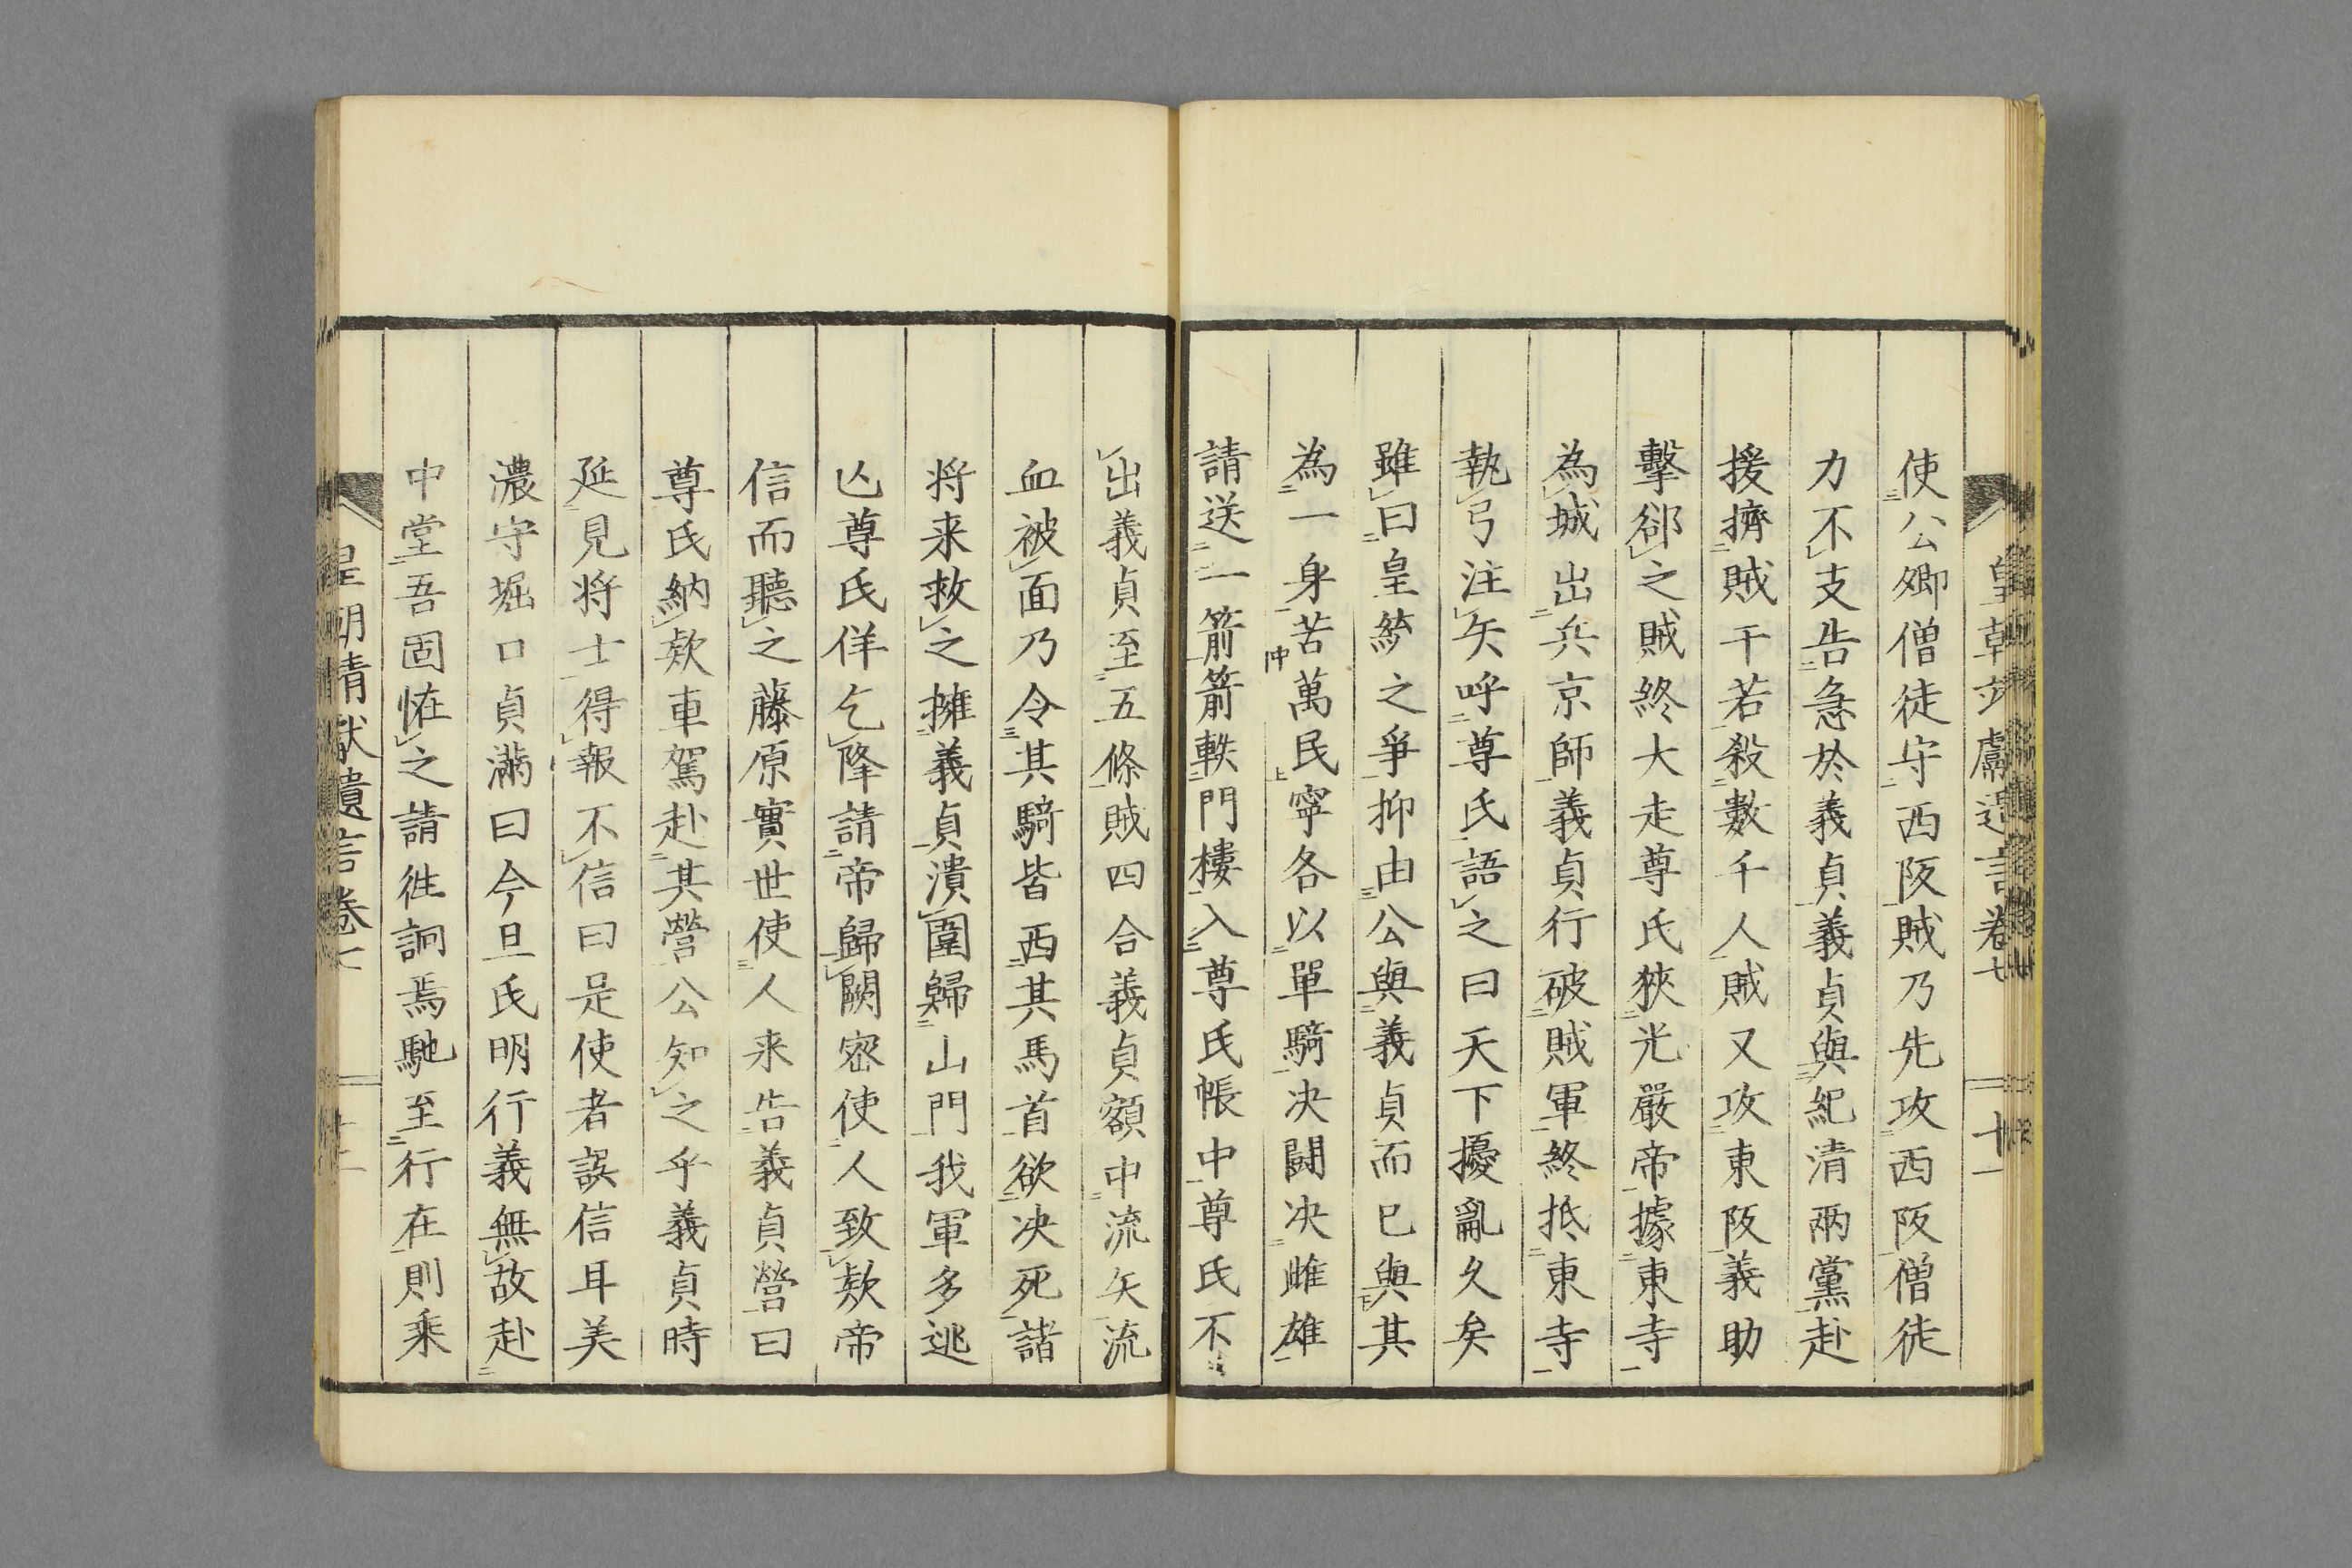 使公卿僧徒守西阪賊乃先攻西阪僧徒
力不支告急於義貞義貞與紀清兩黨赴
援擠賊千若殺數千人賊又攻東阪義助
擊郤之賊終大走尊氏狹光嚴帝據東寺
為城出兵京師義貞行破賊軍終抵東寺
執弓注矢呼尊氏語之曰天下擾亂久矣
雖曰皇統之爭抑由公與義貞而已與其
為一身苦萬民寧各以單騎决闘决雌雄
請送一箭箭軼門樓入尊氏帳中尊氏不
出義貞至五條賊四合義貞額中流矢流
血被面乃令其騎皆西其馬首欲决死諸
将来救之擁義貞潰圍歸山門我軍多逃
亾尊氏佯乞降請帝歸闕密使人致欵帝
信而聽之藤原實世使人来告義貞營曰
尊氏納欵車駕赴其營公知之乎義貞時
延見将士得報不信曰是使者誤信耳美
濃守堀口貞滿曰今旦氏明行義無故赴
中堂吾固恠之請徃詗焉馳至行在則乘
卷七
十一